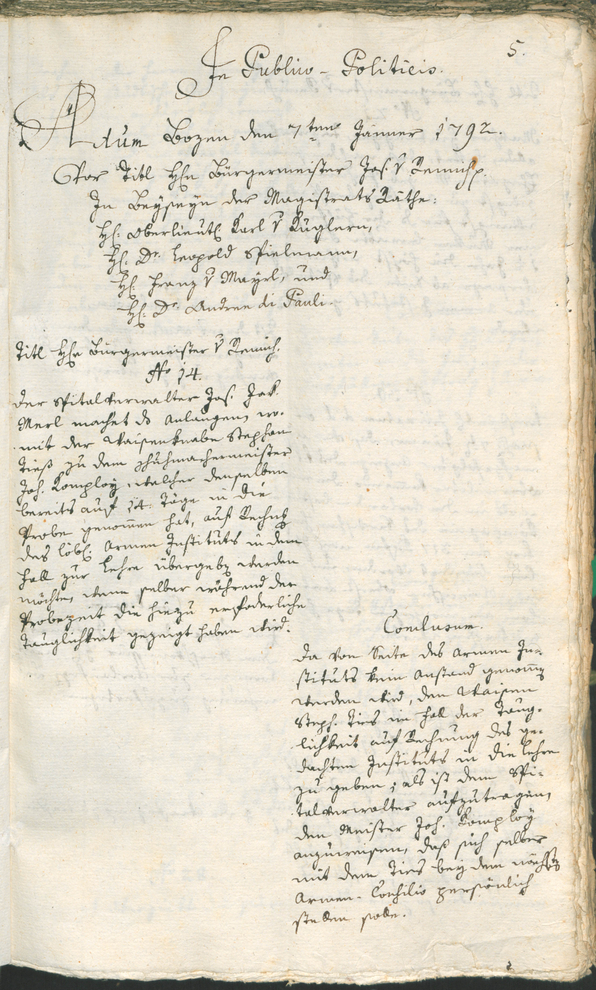 5.
In Publico-Politicis.
Actum Bozen den 7ten Jänner 1792.
Vor Titl Hhn Bürgermeister Jos. v Remich.
In Beyseyn der Magistrats Räthe:
H: Oberlieut: Karl v Kuglern,
H: Dr. Leopold Spielmann,
H: Franz v Mayrl, und
H: Dr. Andree di Pauli.
Titl Hhn Bürgermeister v Remich.
No 14.
Der Spitalverwalter Jos. Jak.
Merl machet ds Anlangen, wo-
mit der Waisenknabe Stephan
Tieß zu dem Schuhmachermeister
Joh. Komploy, welcher denselben
bereits auf 14. Täge in die
Probe genommen hat, auf Rechng
des löbl. Armen Instituts in dem
Fall zur Lehre übergeben werden
möchte, wenn selber während der
Probezeit die hiezu erforderliche
Tauglichkeit gezeigt haben wird.
Conclusum.
Da von Seite des Armen In-
stituts kein Anstand genommen
werden wird, den Waisen
Steph. Ties im Fall der Taug-
lichkeit auf Rechnung des ge-
dachten Instituts in die Lehre
zu geben; als ist dem Spi-
talverwalter aufzutragen,
den Meister Joh. Komploy
anzuweisen, daß sich selber
mit dem Ties bey dem nächsten
Armen-Consilio persönlich
stellen solle.